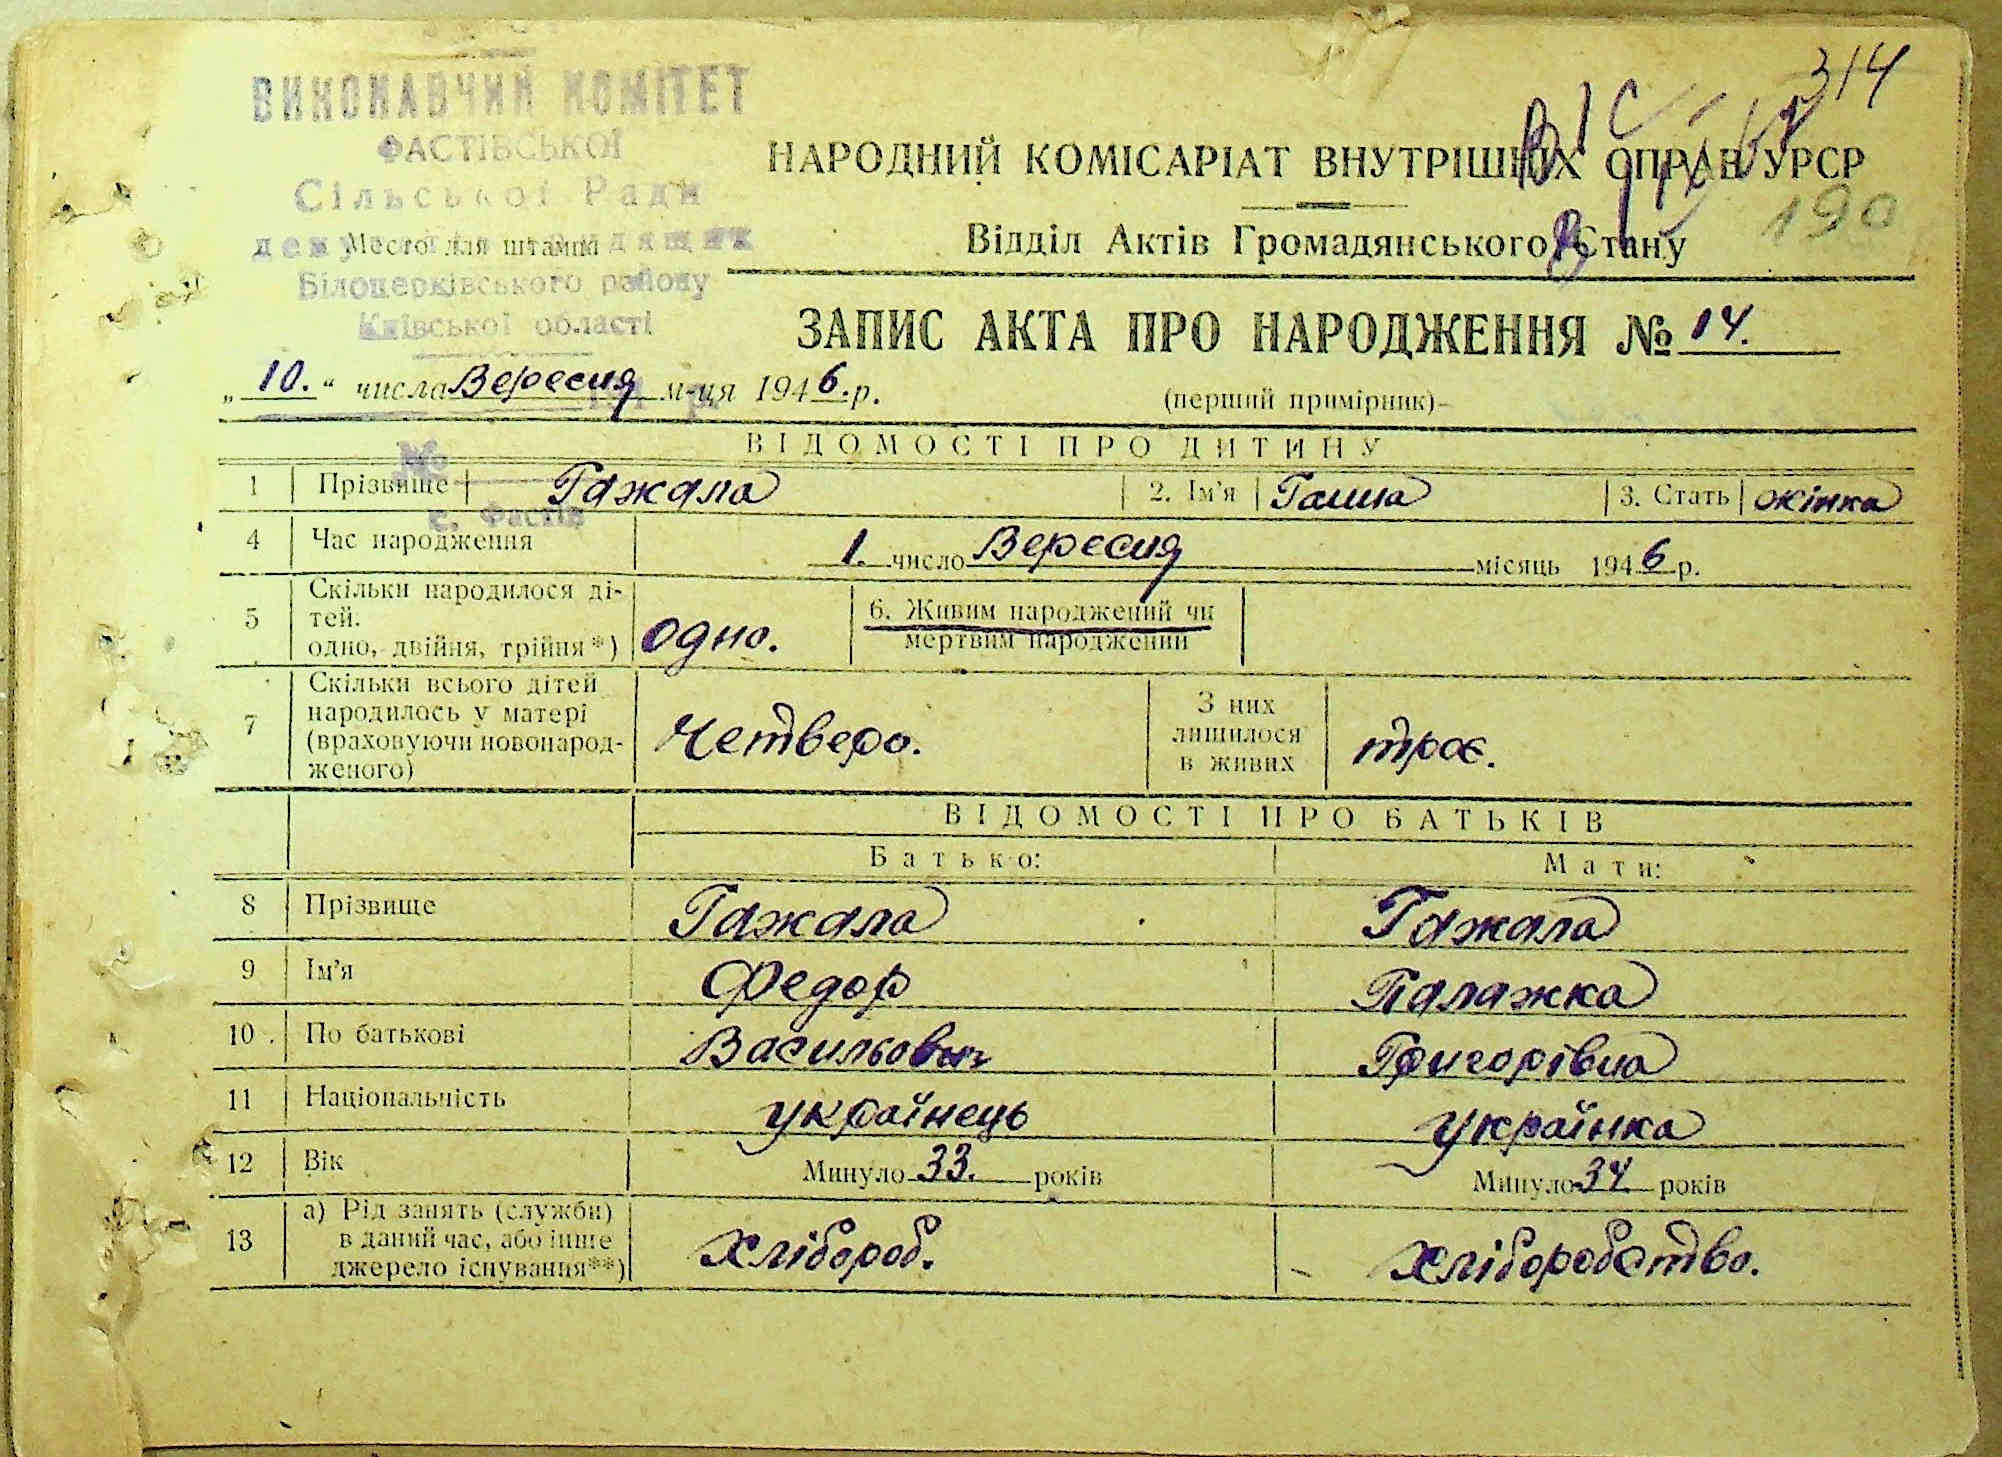 314
ВИКОНАВЧИЙ КОМІТЕТ
ФАСТІВСЬКОЇ
Сільської Ради
депутатів трудящих
Место для штампа
Білоцерківського району
Київської області
НАРОДНИЙ КОМІСАРІАТ ВНУТРІШНІХ СПРАВ УРСР
190
Відділ Актів Громадянського Стану
ЗАПИС АКТА ПРО НАРОДЖЕННЯ № 14.
„10.“ числа Вересня м-ця 1946.р.
(перший примірник)
№
с. Фастів
ВІДОМОСТІ ПРО ДИТИНУ
1 Прізвище Гажала 2. Ім'я Ганна 3. Стать жінка
4 Час народження 1. число Вересня місяць 1946 р.
5 Скільки народилося ді-
тей.
одно, двійня, трійня*) одно.
6. Живим народжений чи
мертвим народжений
7 Скільки всього дітей
народилось у матері
(враховуючи новонарод-
женого) Четверо.
З них
лишилося
в живих троє.
ВІДОМОСТІ ПРО БАТЬКІВ
Батько: Мати:
8 Прізвище Гажала Гажала
9 Ім'я Федор Палажка
10. По батькові Васильович Григорівна
11 Національність українець українка
12 Вік Минуло 33. років Минуло 34 років
13 а) Рід занять (служби)
в даний час, або інше
джерело існування**) Хлібороб. Хліборобство.